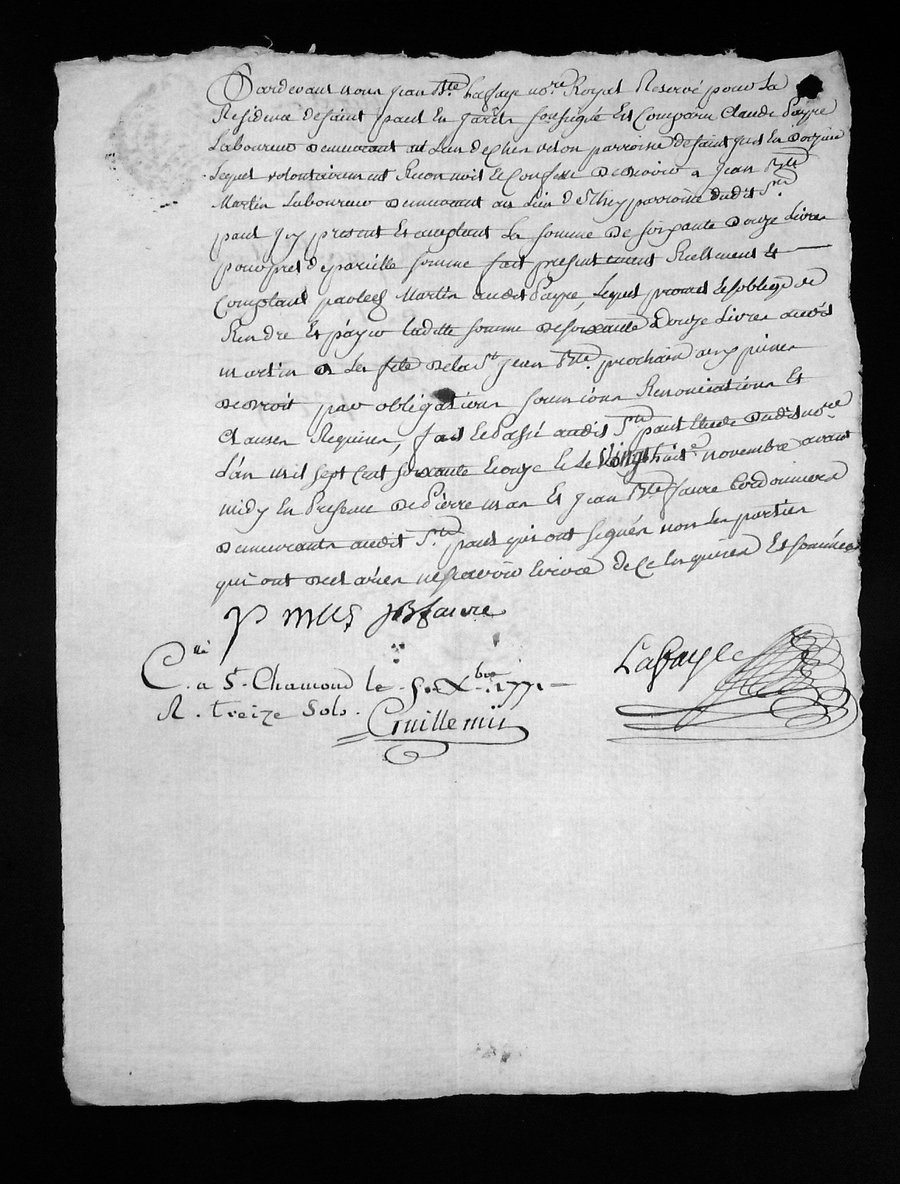 Pardevant nous jean Bte. Lafayle nore Royal Reservé pour La
Residence de saint paul En jarêts soussigné Est Comparu Claude Payre
Laboureur Demeurant au Lieu de parroisse de saint just En doizieu
Lequel volontairement Reconnoit Et Confesse Devoir a jean Bte
Martin Laboureur Demeurant au Lieu de parroisse dudit St
paul jcy present Et acceptant La somme De soixante Douze Livres
pour pret de pareille somme fait presentement Réellement Et
Comptant par led Martin audit Payre Lequel promet Et s'oblige de
Rendre Et payer laditte somme de soixante Douze Livres audit
martin a La fête de la St jean Bte. prochain aux peines
de droit par obligations soumissions Renonciations Et
Clauses Requises, fait Et Passé audit St paul Etude dudit nore
L'an mil sept Cent soixante Et onze Et Le vingt huit e. novembre avant
midy En Presence De Pierre mas Et jean Bte faure Cordonniers
Demeurants audit St. paul qui ont signés non Les parties
qui ont declarées ne scavoir Ecrire de Ce Enquises Et sommées
P mas JB faure
Clé
C. a St. Chamond le 5. Xbre. 1771
R. treize Sols. Lafayle
Guillemin